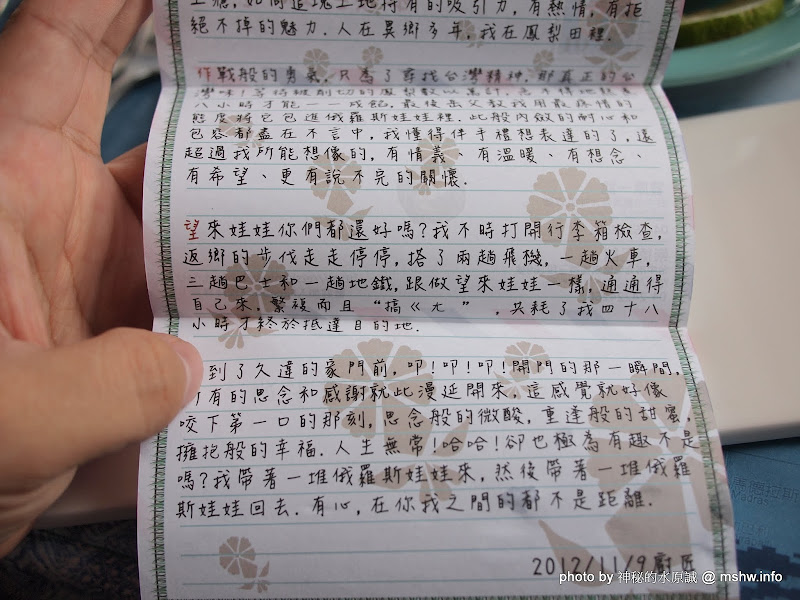 絕不掉的魅力.人在異鄉多年,我在鳳梨田裡.
作戰般的勇氣,只為了尋找台灣精神,那真正的台
八小時才能一一成餡.最後岳父教我用最疼惜的
態度將它包進俄羅斯娃娃裡.此般內斂的耐心和
包容都盡在不言中,我懂得伴手禮想表達的了,遠
超過我所能想像的,有情義、有溫暖、有想念、
有希望、更有說不完的關懷.
望來娃娃你們都還好嗎?我不時打開行李箱檢查,
返鄉的步伐走走停停,搭了兩趟飛機,一趟火車,
三趟巴士和一趟地鐵,跟做望來娃娃一樣,通通得
自己來.繁複而且“搞ㄍㄤ”,共耗了我四十八
小時才終於抵達目的地.
到了久違的家門前,叩!叩!叩!開門的那一瞬間,
有的思念和感謝就此漫延開來,這感覺就好像
咬下第一口的那刻,思念般的微酸,重逢般的甜蜜,
擁抱般的幸福.人生無常!哈哈!卻也極為有趣不是
嗎?我帶著一堆俄羅斯娃娃來,然後帶著一堆俄羅
斯娃娃回去.有心,在你我之間的都不是距離.
2012/11/9 廚匠
photo by 神秘的水原誠 @ mshw.info